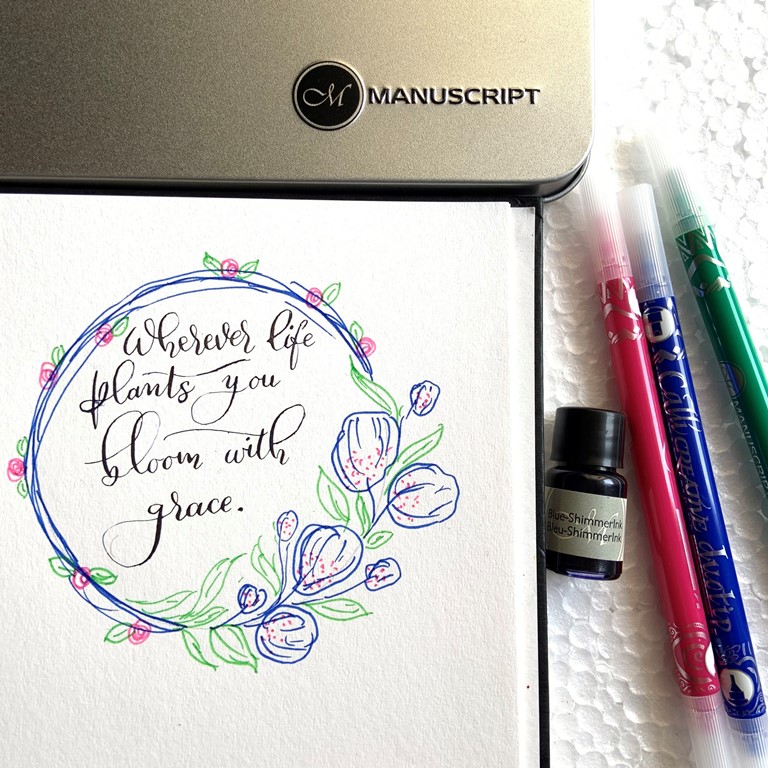 M MANUSCRIPT
Wherever life
plants you
bloom with
grace.
Blue-ShimmerInk
Bleu-ShimmerInk
MANUSCRIPT